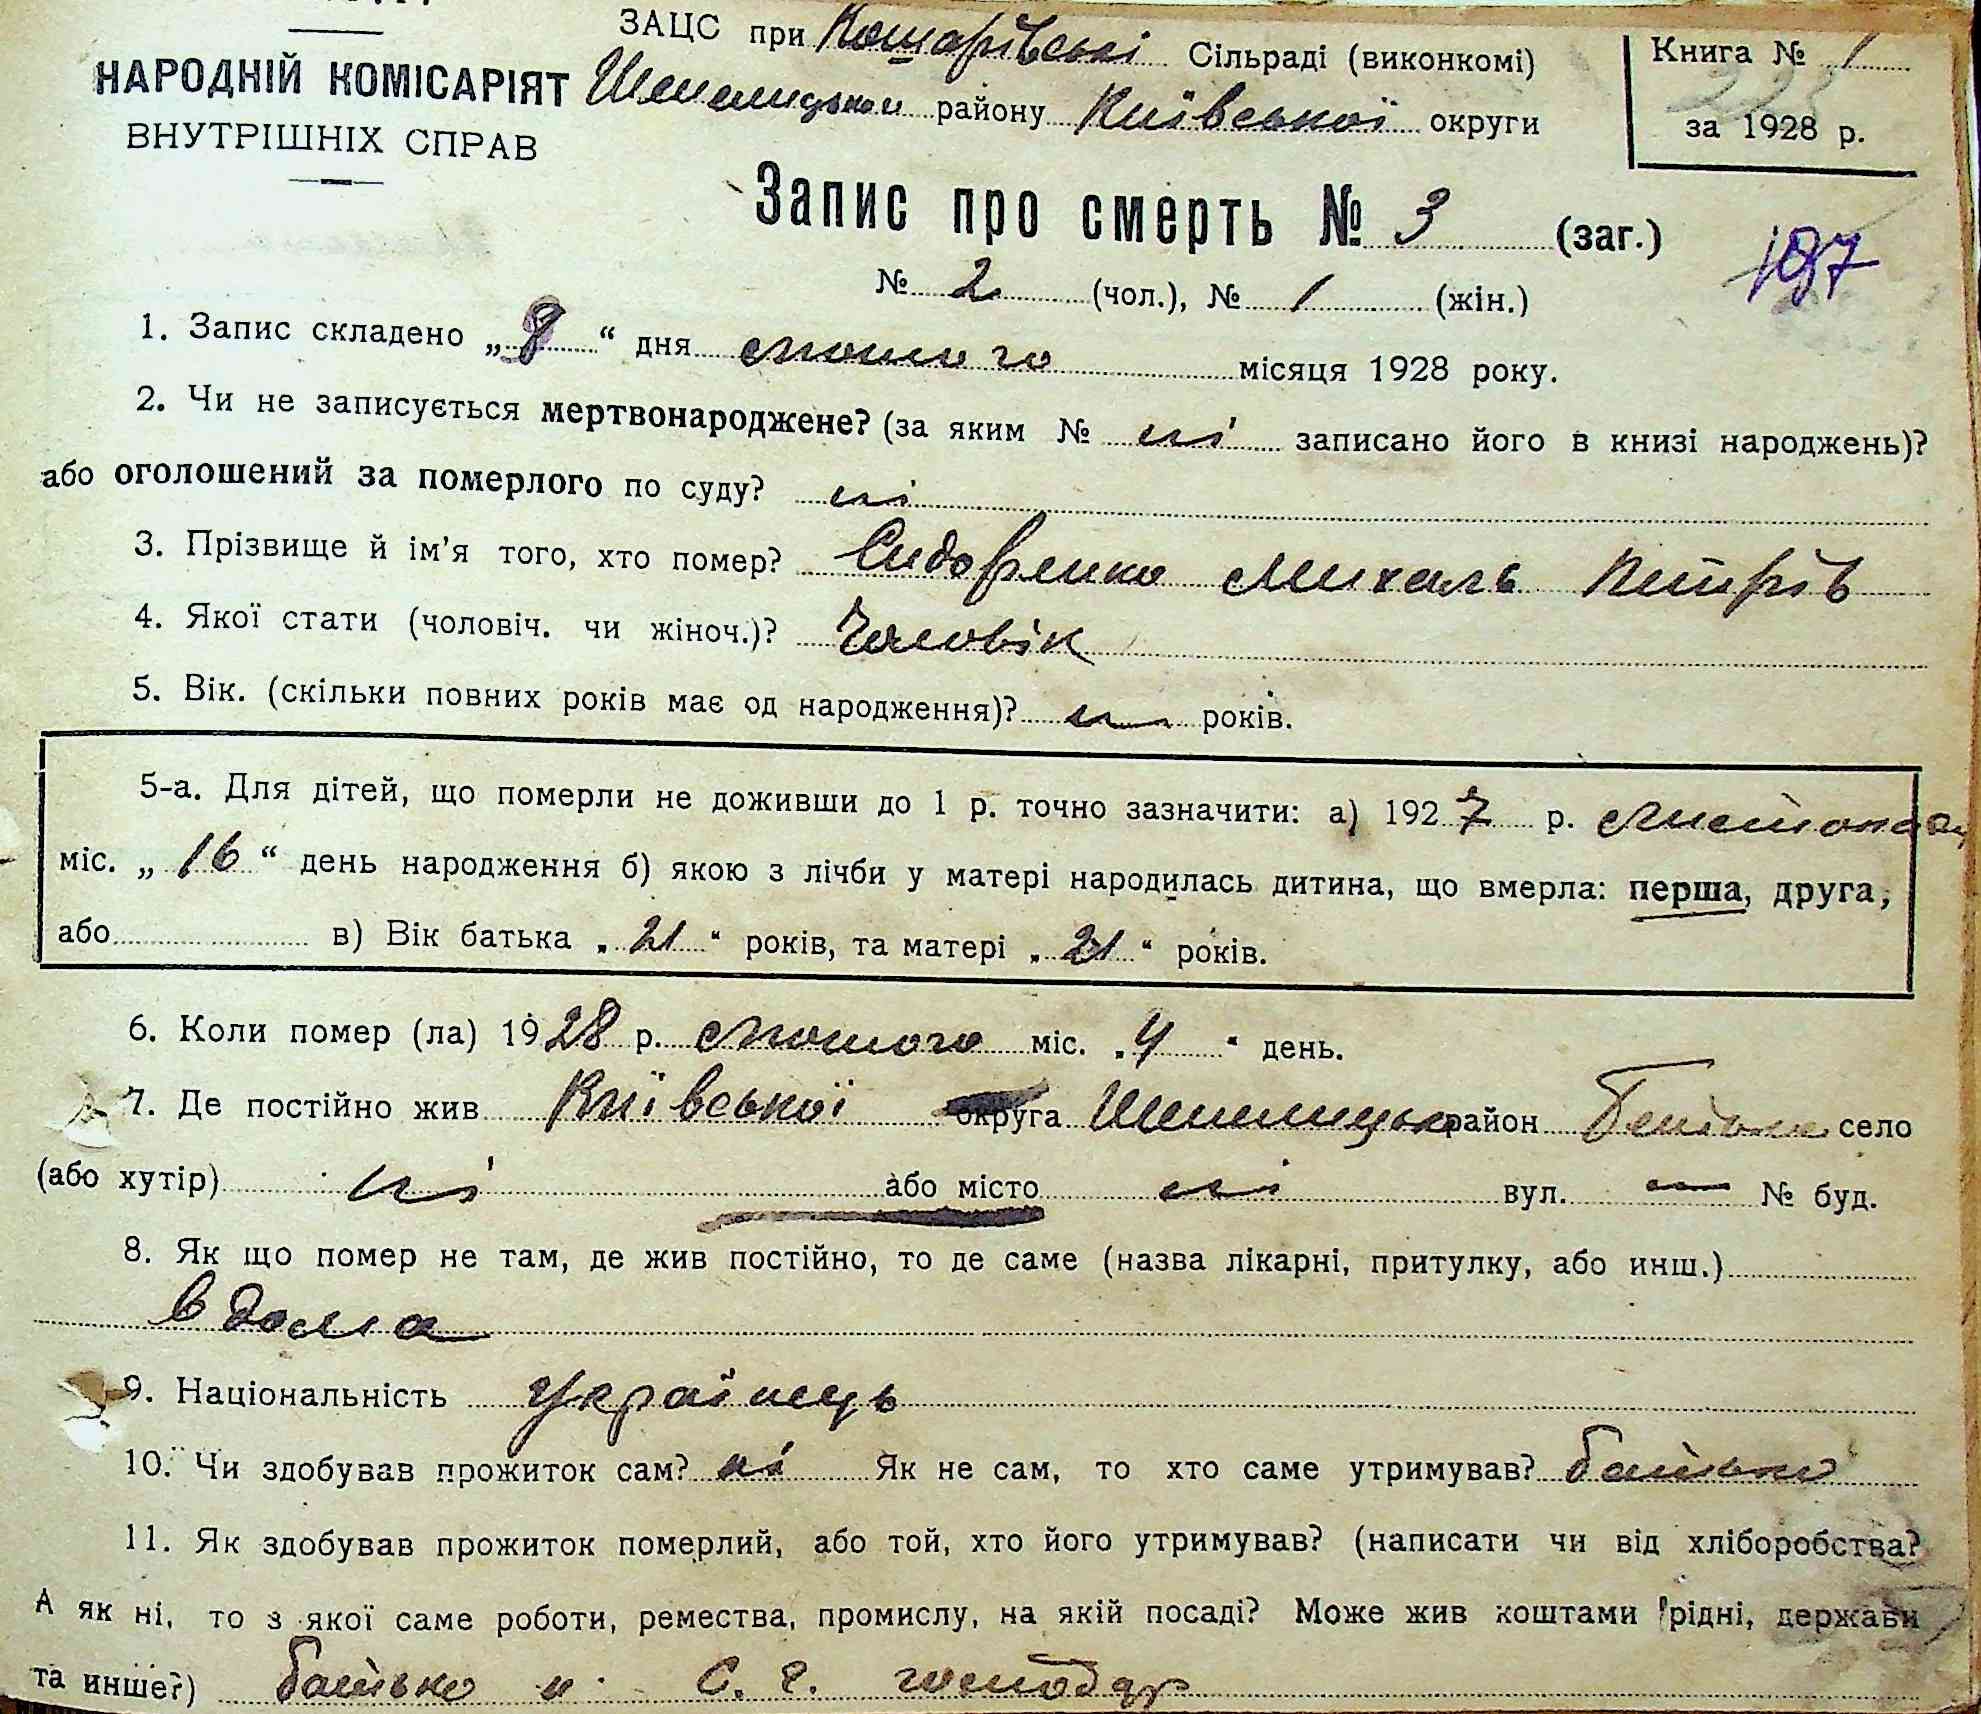 ЗАЦС при Кошарівські Сільраді (виконкомі)
Книга № 1
НАРОДНІЙ КОМІСАРІЯТ
Шепелицькои району Київської округи
ВНУТРІШНІХ СПРАВ
за 1928 р.
Запис про смерть № 3 (заг.)
197
№ 2 (чол.), № 1 (жін.)
1. Запис складено „ 8 “ дня лютого місяця 1928 року.
2. Чи не записується мертвонароджене? (за яким № ні записано його в книзі народжень)?
або оголошений за померлого по суду? ні
3. Прізвище й ім’я того, хто помер? Сидоренко Михаль Петрів
4. Якої стати (чоловіч. чи жіноч.)? Чоловік
5. Вік. (скільки повних років має од народження)? років.
5-а. Для дітей, що померли не доживши до 1 р. точно зазначити: а) 1927 р. Листопада
міс. „ 16 “ день народження б) якою з лічби у матері народилась дитина, що вмерла: перша, друга,
або в) Вік батька „ 21 “ років, та матері „ 21 “ років.
6. Коли помер (ла) 1928 р. лютого міс. „ 4 “ день.
7. Де постійно жив Київської округа Шепелицьк район село
(або хутір) ні або місто ні вул. — № буд.
8. Як що помер не там, де жив постійно, то де саме (назва лікарні, притулку, або инш.)
в дома
9. Національність Українець
10. Чи здобував прожиток сам? ні Як не сам, то хто саме утримував? батько
11. Як здобував прожиток померлий, або той, хто його утримував? (написати чи від хліборобства?
А як ні, то з якої саме роботи, ремества, промислу, на якій посаді? Може жив коштами рідні, держави
та инше?) батько С. Г. господар